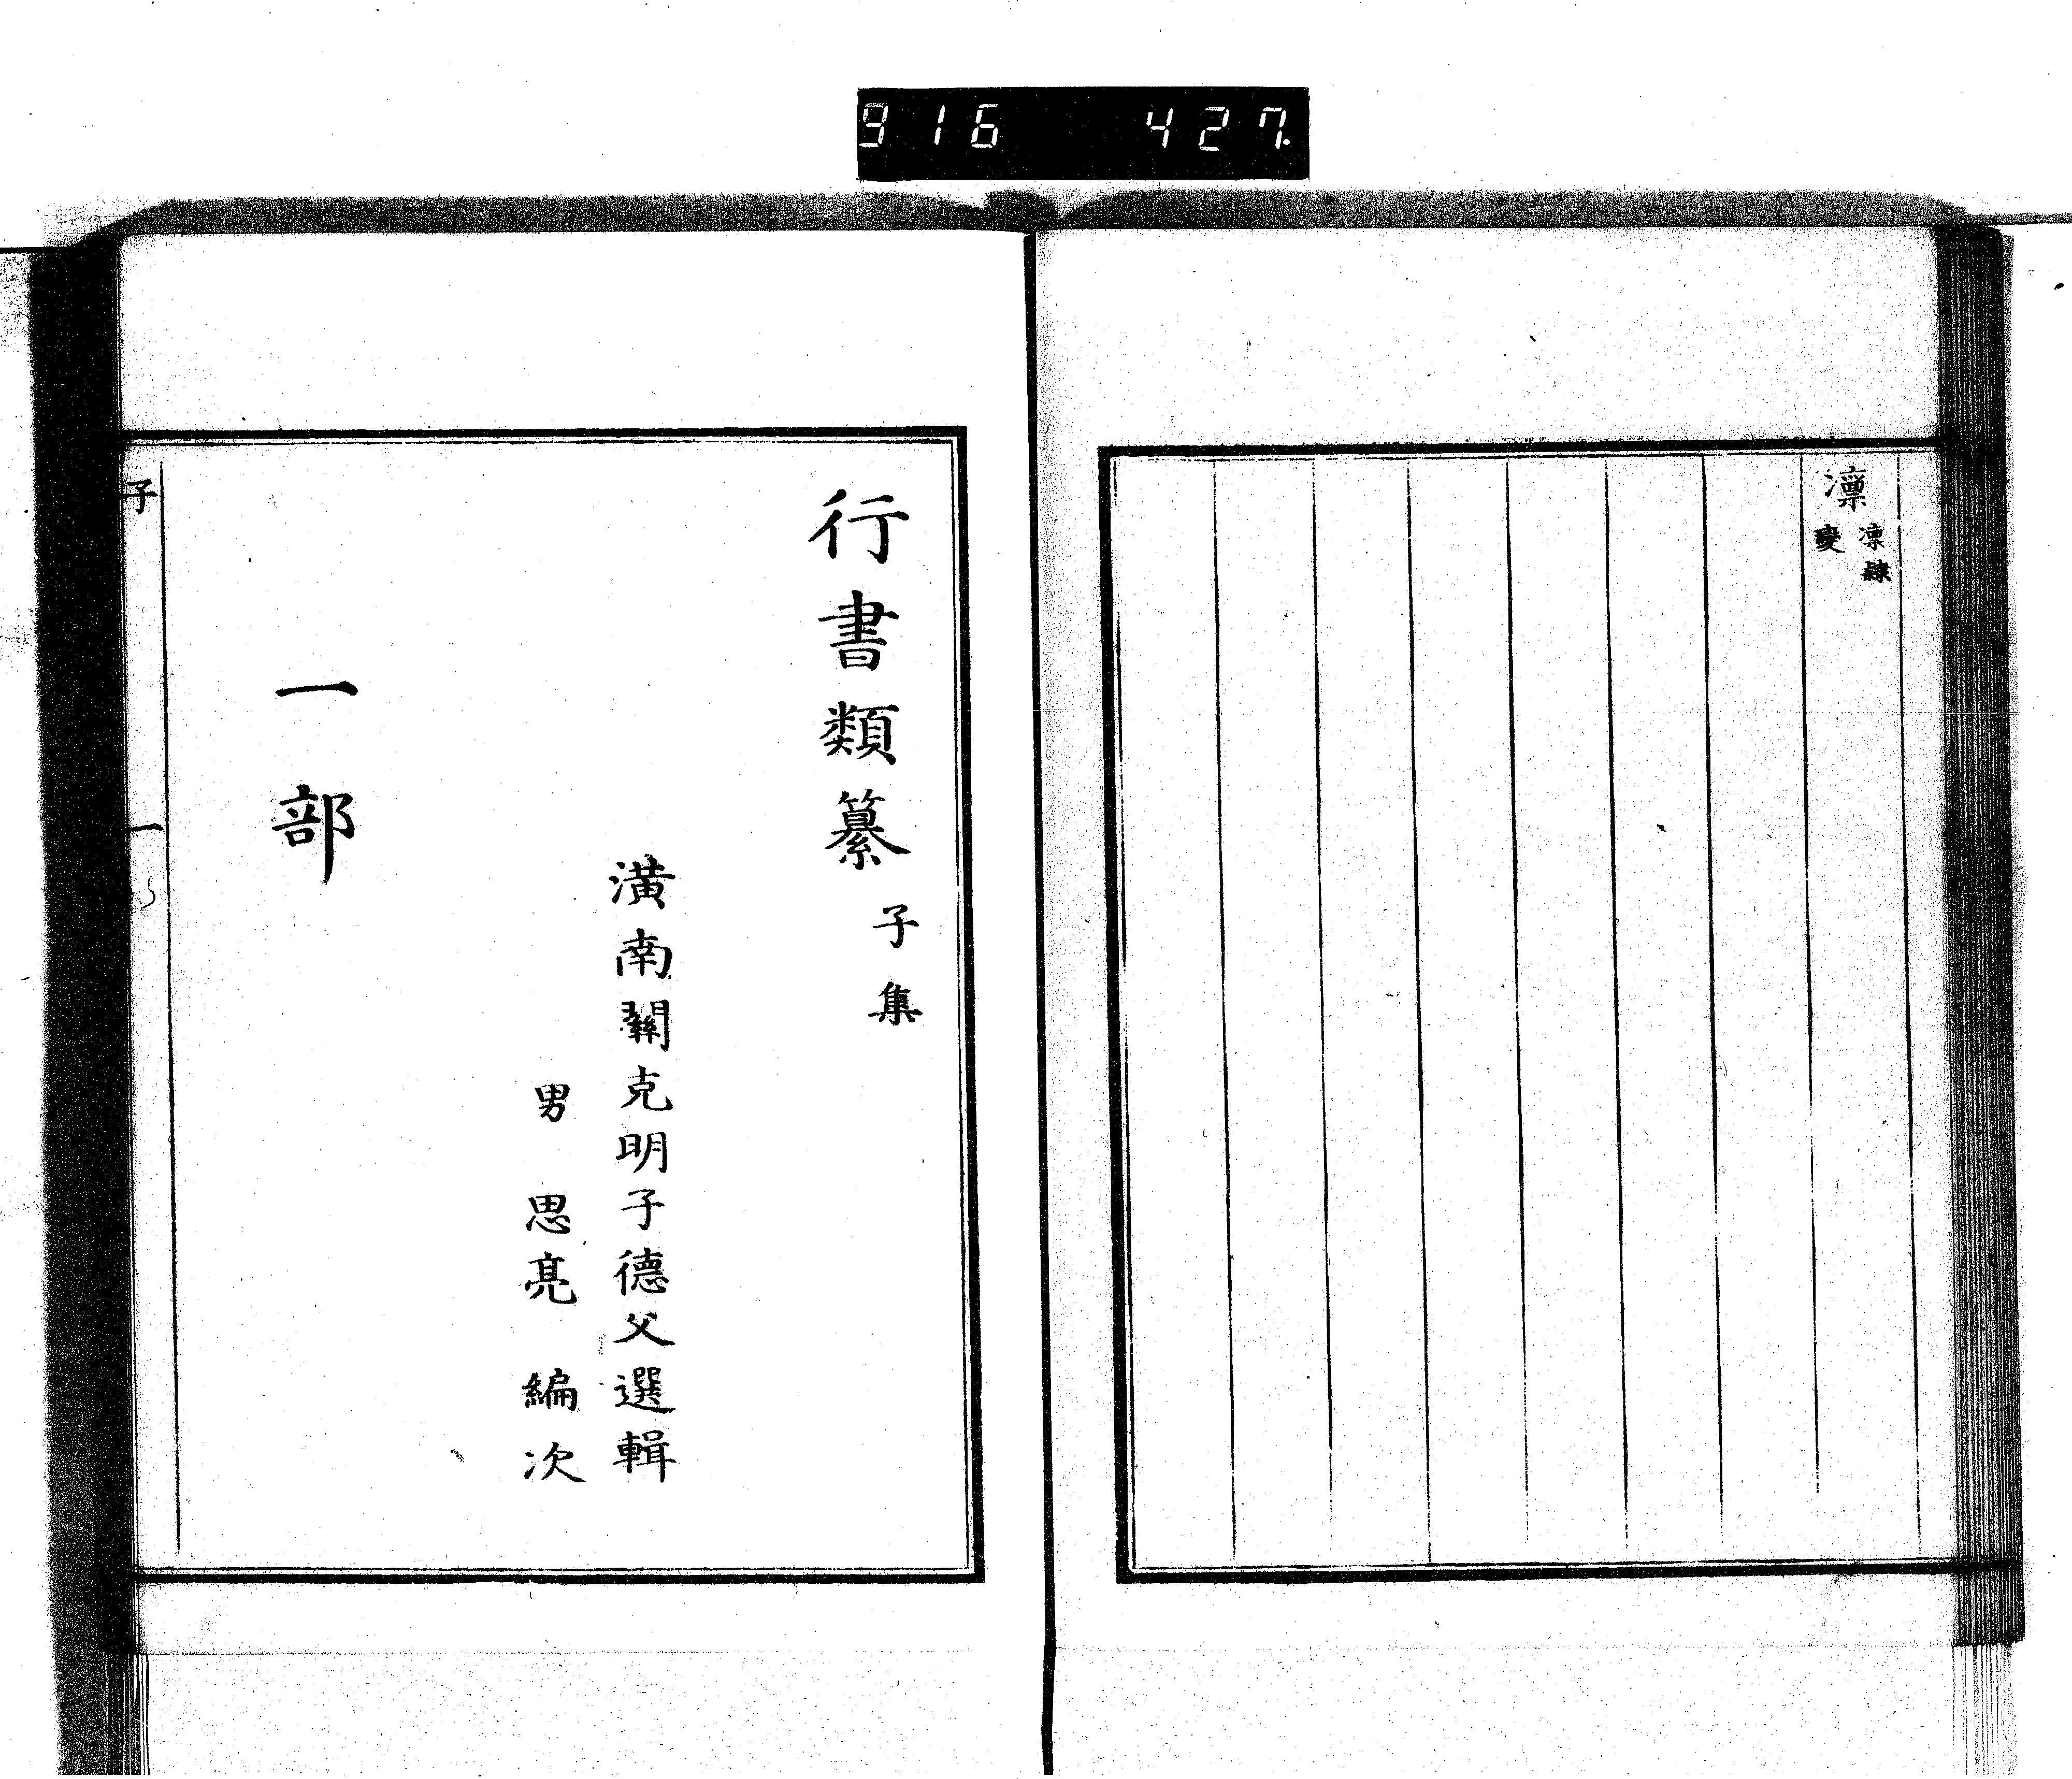 916 427.
凛
凛隸
變
行書類纂 子集
潢南關克明子德父選輯
男 思亮 編次
一部
子 一